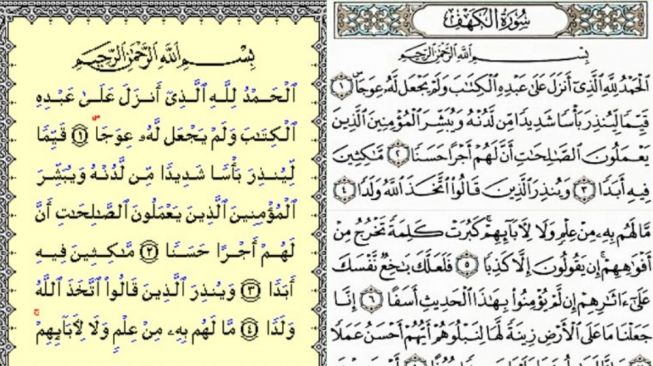 بِسْمِ ٱللَّهِ ٱلرَّحْمَٰنِ ٱلرَّحِيمِ
ٱلْحَمْدُ لِلَّهِ ٱلَّذِىٓ أَنزَلَ عَلَىٰ عَبْدِهِ
ٱلْكِتَٰبَ وَلَمْ يَجْعَل لَّهُۥ عِوَجَاۜ ١ قَيِّمًا
لِّيُنذِرَ بَأْسًا شَدِيدًا مِّن لَّدُنْهُ وَيُبَشِّرَ
ٱلْمُؤْمِنِينَ ٱلَّذِينَ يَعْمَلُونَ ٱلصَّٰلِحَٰتِ أَنَّ
لَهُمْ أَجْرًا حَسَنًا ٢ مَّٰكِثِينَ فِيهِ
أَبَدًا ٣ وَيُنذِرَ ٱلَّذِينَ قَالُوا۟ ٱتَّخَذَ ٱللَّهُ
وَلَدًا ٤ مَّا لَهُم بِهِۦ مِنْ عِلْمٍ وَلَا لِـَٔابَآئِهِمْ ۚ
سُورَةُ الْكَهْفِ
بِسْمِ ٱللَّهِ ٱلرَّحْمَٰنِ ٱلرَّحِيمِ
ٱلْحَمْدُ لِلَّهِ ٱلَّذِىٓ أَنزَلَ عَلَىٰ عَبْدِهِ ٱلْكِتَٰبَ وَلَمْ يَجْعَل لَّهُۥ عِوَجَاۜ ١
قَيِّمًا لِّيُنذِرَ بَأْسًا شَدِيدًا مِّن لَّدُنْهُ وَيُبَشِّرَ ٱلْمُؤْمِنِينَ ٱلَّذِينَ
يَعْمَلُونَ ٱلصَّٰلِحَٰتِ أَنَّ لَهُمْ أَجْرًا حَسَنًا ٢ مَّٰكِثِينَ
فِيهِ أَبَدًا ٣ وَيُنذِرَ ٱلَّذِينَ قَالُوا۟ ٱتَّخَذَ ٱللَّهُ وَلَدًا ٤
مَّا لَهُم بِهِۦ مِنْ عِلْمٍ وَلَا لِـَٔابَآئِهِمْ ۚ كَبُرَتْ كَلِمَةً تَخْرُجُ مِنْ
أَفْوَٰهِهِمْ ۚ إِن يَقُولُونَ إِلَّا كَذِبًا ٥ فَلَعَلَّكَ بَٰخِعٌ نَّفْسَكَ
عَلَىٰٓ ءَاثَٰرِهِمْ إِن لَّمْ يُؤْمِنُوا۟ بِهَٰذَا ٱلْحَدِيثِ أَسَفًا ٦ إِنَّا
جَعَلْنَا مَا عَلَى ٱلْأَرْضِ زِينَةً لَّهَا لِنَبْلُوَهُمْ أَيُّهُمْ أَحْسَنُ عَمَلًا